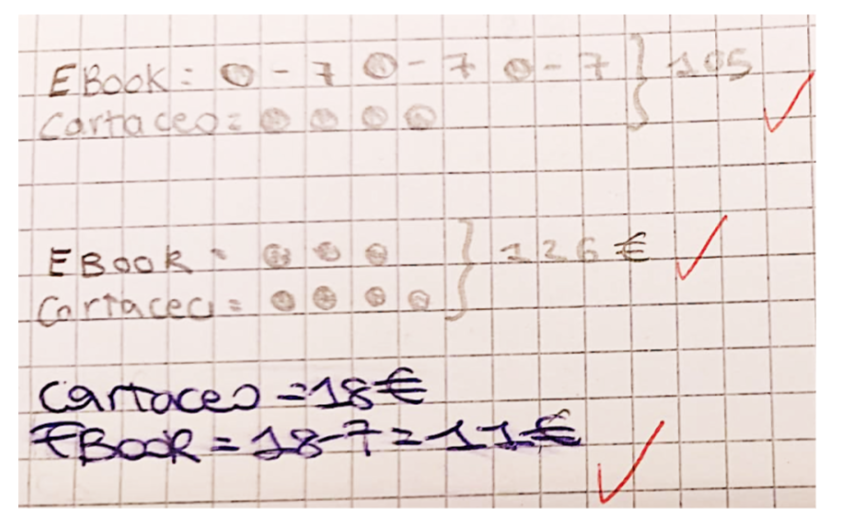 EBook = O - 7 O - 7 O - 7 } 105
Cartaceo = O O O O
EBook = O O O } 126 €
Cartaceo = O O O O
Cartaceo = 18€
EBook = 18-7 = 11€